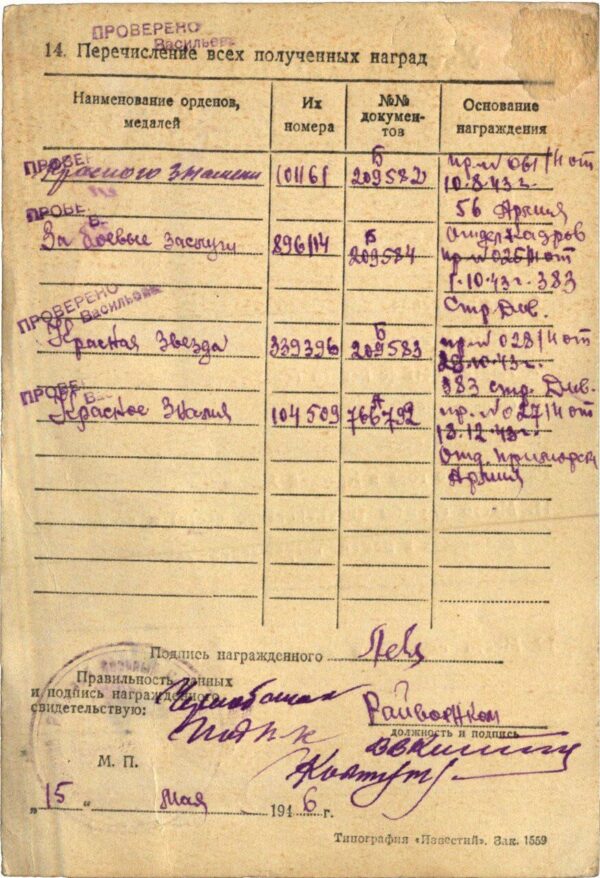 ПРОВЕРЕНО
Васильева
14. Перечисление всех полученных наград
Наименование орденов, медалей
Их номера
№№ документов
Основание награждения
ПРОВЕ
Красного знамени 101161 Б 209582 пр. № 061/н от
10.8.43 г.
56 Армия
ПРОВЕ
В.
За боевые заслуги 896114 Б 209584 отдел кадров
пр. № 025/н от
1.10.43 г. 383
стр. див.
ПРОВЕРЕНО
Васильева
Красная Звезда 339396 Б 209583 пр. № 028/н от
28.10.43 г.
383 стр. див.
ПРОВЕ
В
Красное Знамя 104509 А 766792 пр. № 027/н от
13.12.43 г.
отд. приморск
Армия
Подпись награжденного
Правильность данных
и подпись награжденного
свидетельствую:
Райвоенком
должность и подпись
М. П.
„15“ мая 1946 г.
Типография «Известий». Зак. 1559